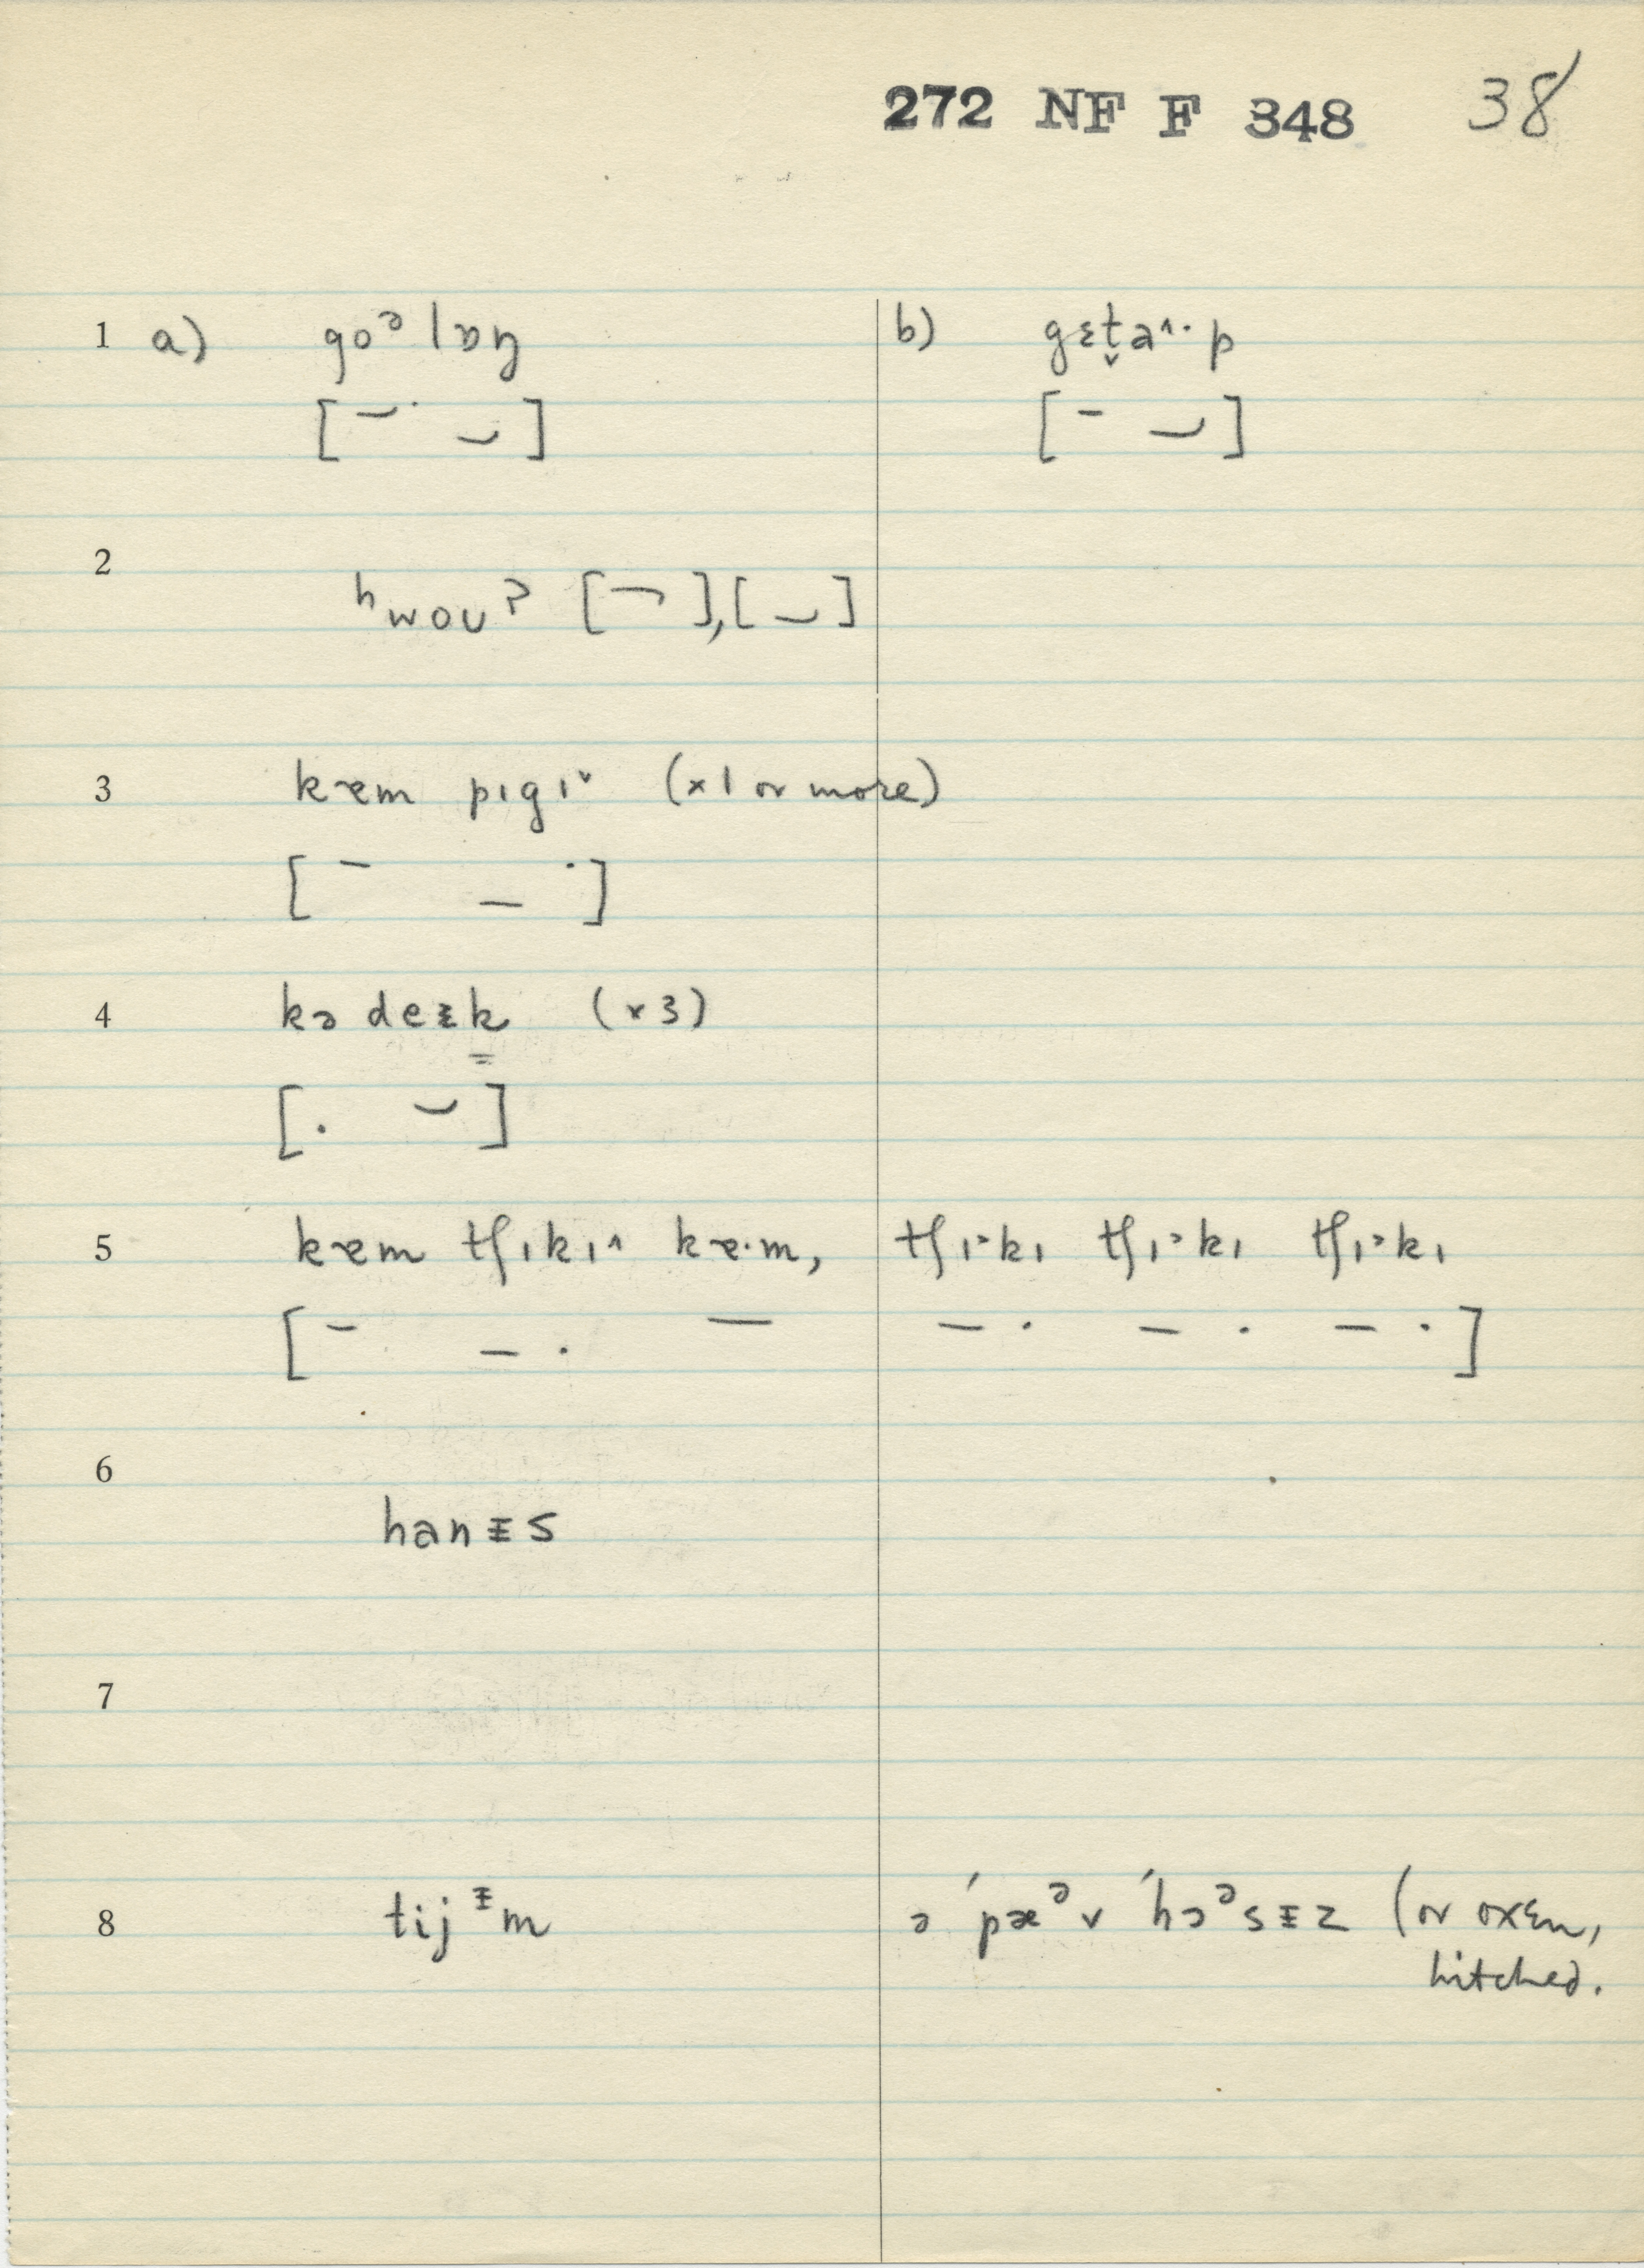 272 NF F 348 38
1 a) goᵊ lɒŋ b) gɛt̬a^· p
[ ]  [ ]
2
ʰwoʊ? [ ],[ ]
3 kɐm pɪgɪˇ (x 1 or more)
[ ]
4 kə deɪk (x3)
[ ]
5 kɐm tʃɪkɪ^ kɐ·m, tʃɪ˃kɪ tʃɪ˃kɪ tʃɪ˃kɪ
[ ]
6
hanɪs
7
8 tijᶧm ə ˈpæᵊ v ˈhɔᵊsɨz (or oxen,
hitched.